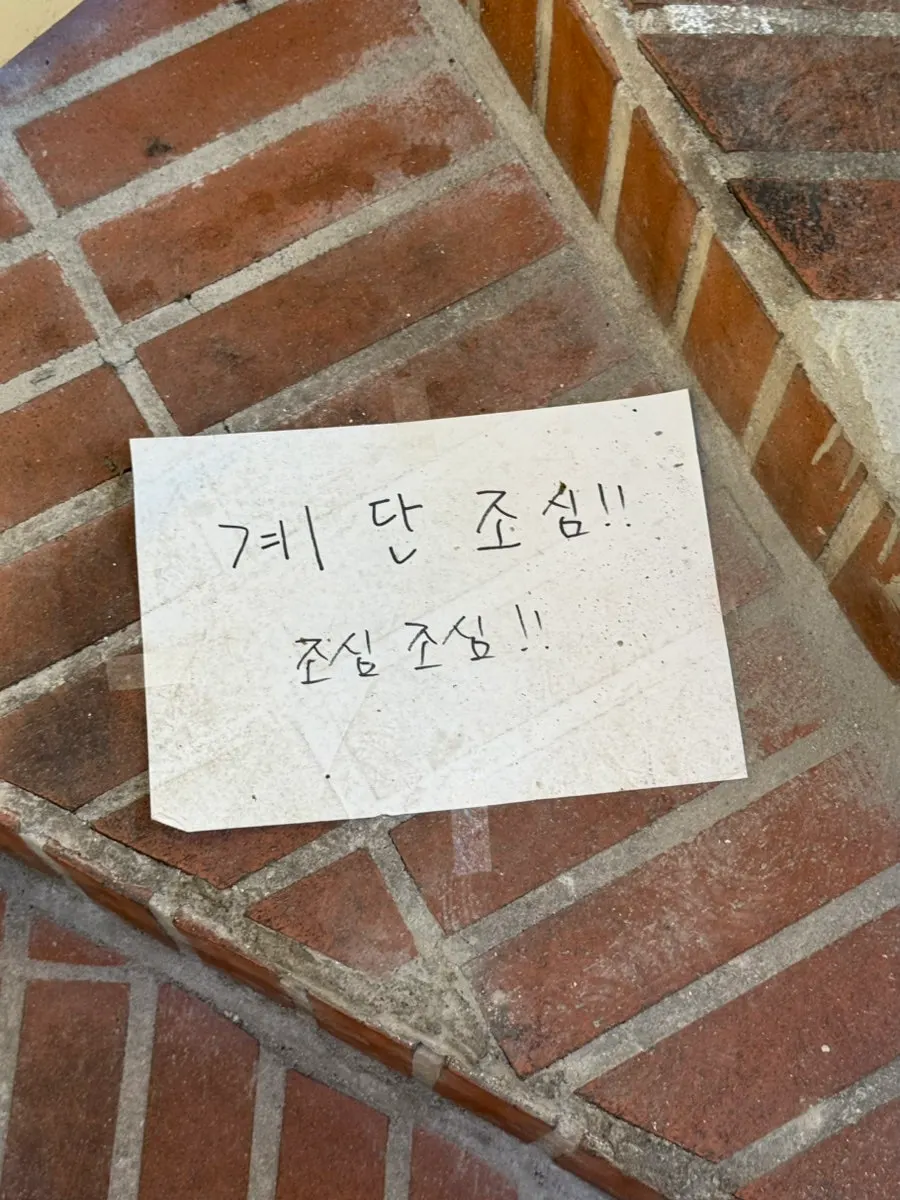 계 단 조 심!!
조심 조심!!